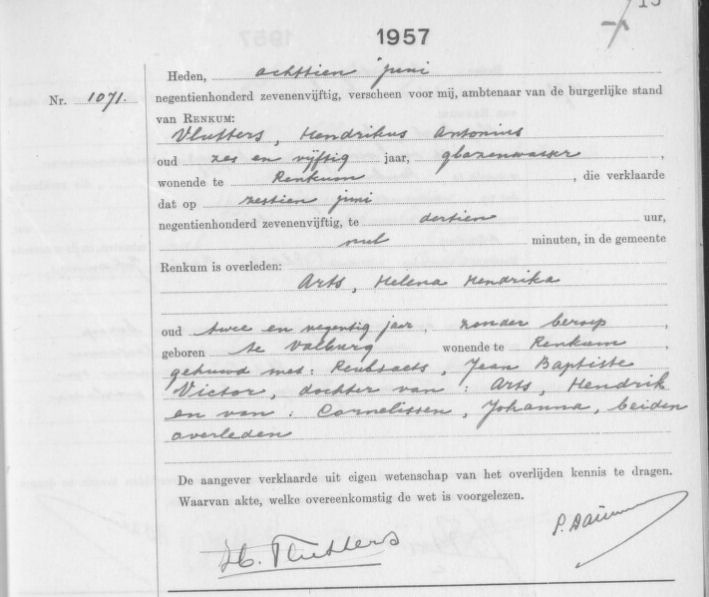 1957
Heden, achttien juni
Nr. 1071. negentienhonderd zevenenvijftig, verscheen voor mij, ambtenaar van de burgerlijke stand
van RENKUM:
Vlutters, Hendrikus Antonius
oud zes en vijftig jaar, glazenwasser,
wonende te Renkum, die verklaarde
dat op zestien juni
negentienhonderd zevenenvijftig, te dertien uur,
nul minuten, in de gemeente
Renkum is overleden:
Arts, Helena Hendrika
oud twee en negentig jaar, zonder beroep,
geboren te Valburg wonende te Renkum,
gehuwd met: Reubsaets, Jean Baptiste
Victor, dochter van: Arts, Hendrik
en van: Cornelissen, Johanna, beiden
overleden
De aangever verklaarde uit eigen wetenschap van het overlijden kennis te dragen.
Waarvan akte, welke overeenkomstig de wet is voorgelezen.
H. Vlutters